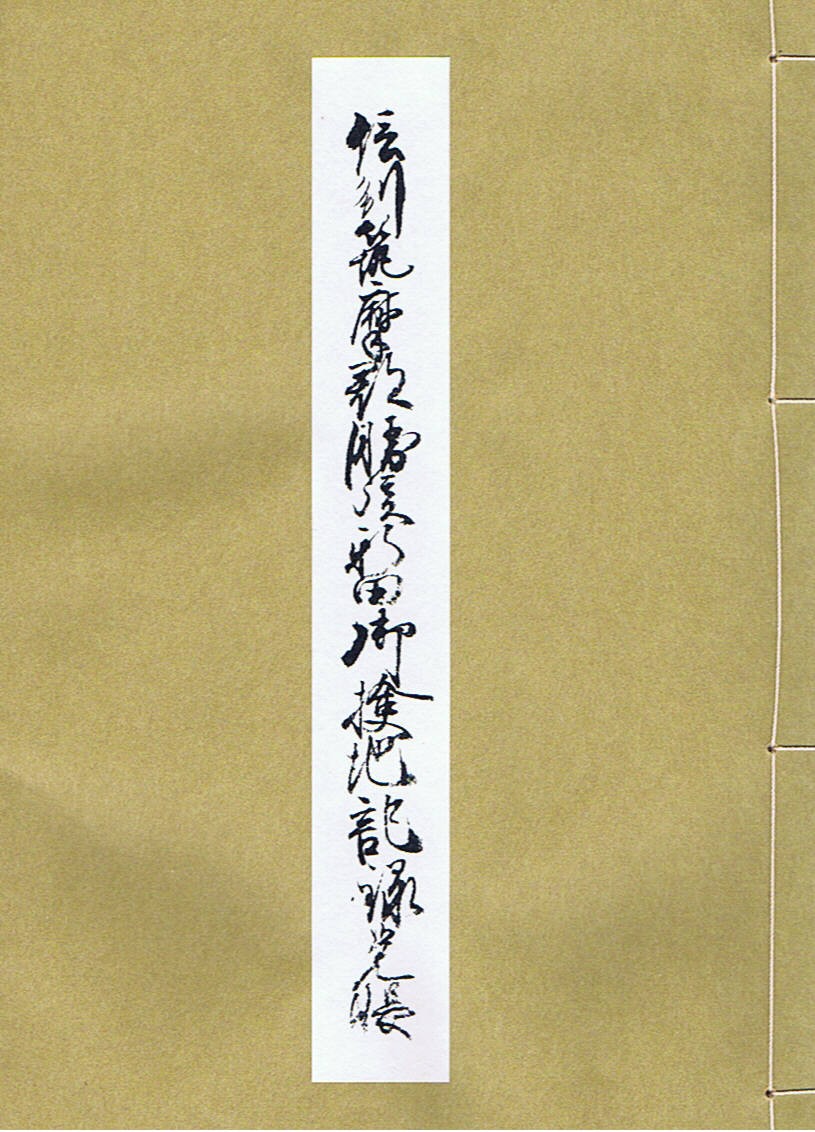 信州筑摩郡勝弦新田御検地記録覚帳